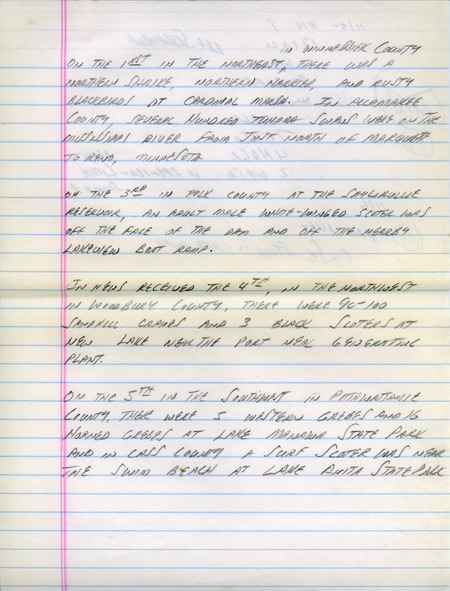 IN WINNESHIEK COUNTY
ON THE 1ST IN THE NORTHEAST, THERE WAS A
NORTHERN SHRIKE, NORTHERN HARRIER, AND RUSTY
BLACKBIRDS AT CARDINAL MARSH. IN ALLAMAKEE
COUNTY, SEVERAL HUNDRED TUNDRA SWANS WERE ON THE
MISSISSIPPI RIVER FROM JUST NORTH OF MARQUETTE
TO RENO, MINNESOTA
ON THE 3RD IN POLK COUNTY AT THE SAYLORVILLE
RESERVOIR, AN ADULT MALE WHITE-WINGED SCOTER WAS
OFF THE FACE OF THE DAM AND OFF THE NEARBY
LAKEVIEW BOAT RAMP.
IN NEWS RECEIVED THE 4TH, IN THE NORTHWEST
IN WOODBURY COUNTY, THERE WERE 90-100
SANDHILL CRANES AND 3 BLACK SCOTERS AT
NEW LAKE NEAR THE PORT NEAL GENERATING
PLANT.
ON THE 5TH IN THE SOUTHWEST IN POTTAWATTAMIE
COUNTY, THERE WERE 5 WESTERN GREBES AND 16
HORNED GREBES AT LAKE MANAWA STATE PARK
AND IN CASS COUNTY A SURF SCOTER WAS NEAR
THE SWIM BEACH AT LAKE ANITA STATE PARK